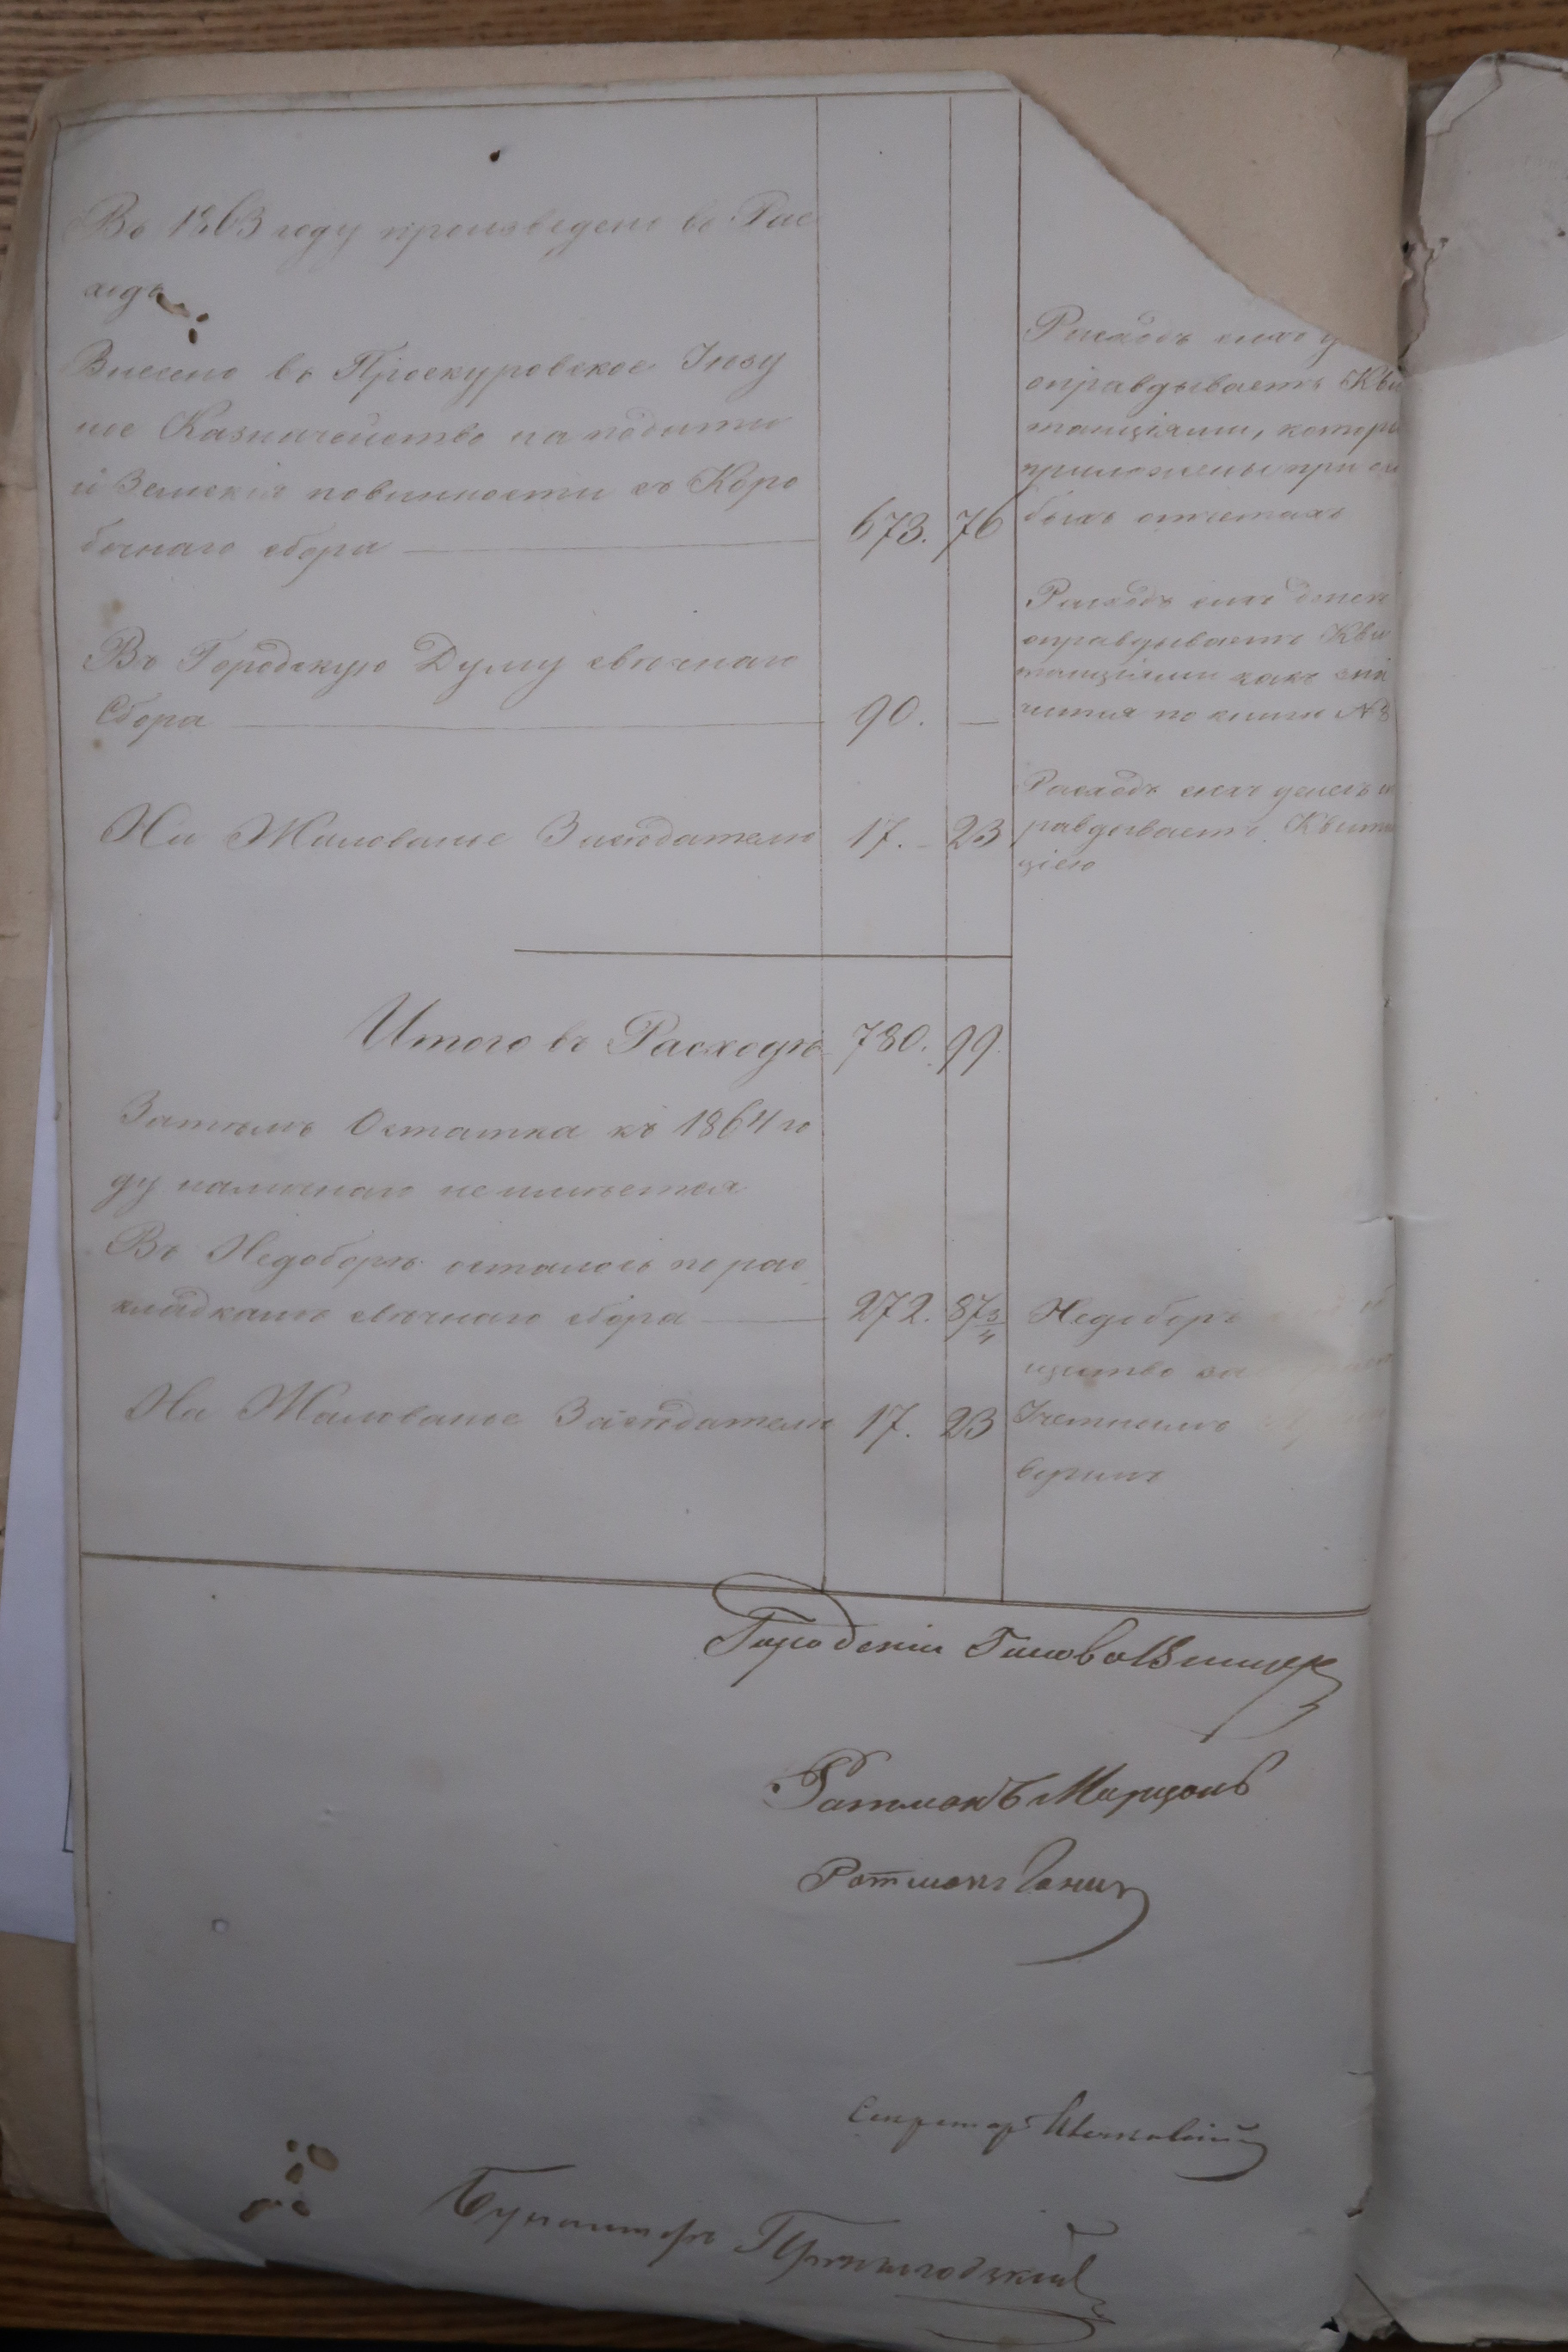 Въ 1863 году произведено въ Рас
ходъ
Внесено въ Проскуровское Уѣзд
ное Казначейство на подати
и Земскія повинности съ Коро
бочнаго сбора 673. 76
Расходъ сихъ
оправдываетъ Кви
танціями, котор
приложены при
быхъ отчетахъ
Въ Городскую Думу свѣчнаго
Сбора 90. —
Расходъ сихъ денег
оправдываетъ Кви
танціями какъ зна
чится по книгѣ № 8
На Жалованье Засѣдателю 17. 23
Расходъ сихъ денегъ
равдываетъ Квита
ціею
Итого въ Расходѣ 780. 99.
Затѣмъ Остатка къ 1864 го
ду наличнаго не имѣется
Въ Недоборѣ осталось по рас
кладкамъ свѣчнаго сбора 272. 87 3/4
На Жалованье Засѣдателю 17. 23
Недоборъ
щитво за
веримъ
Городскій Голова
Ратманъ
Ратманъ
Секретарь
Бухгалтеръ